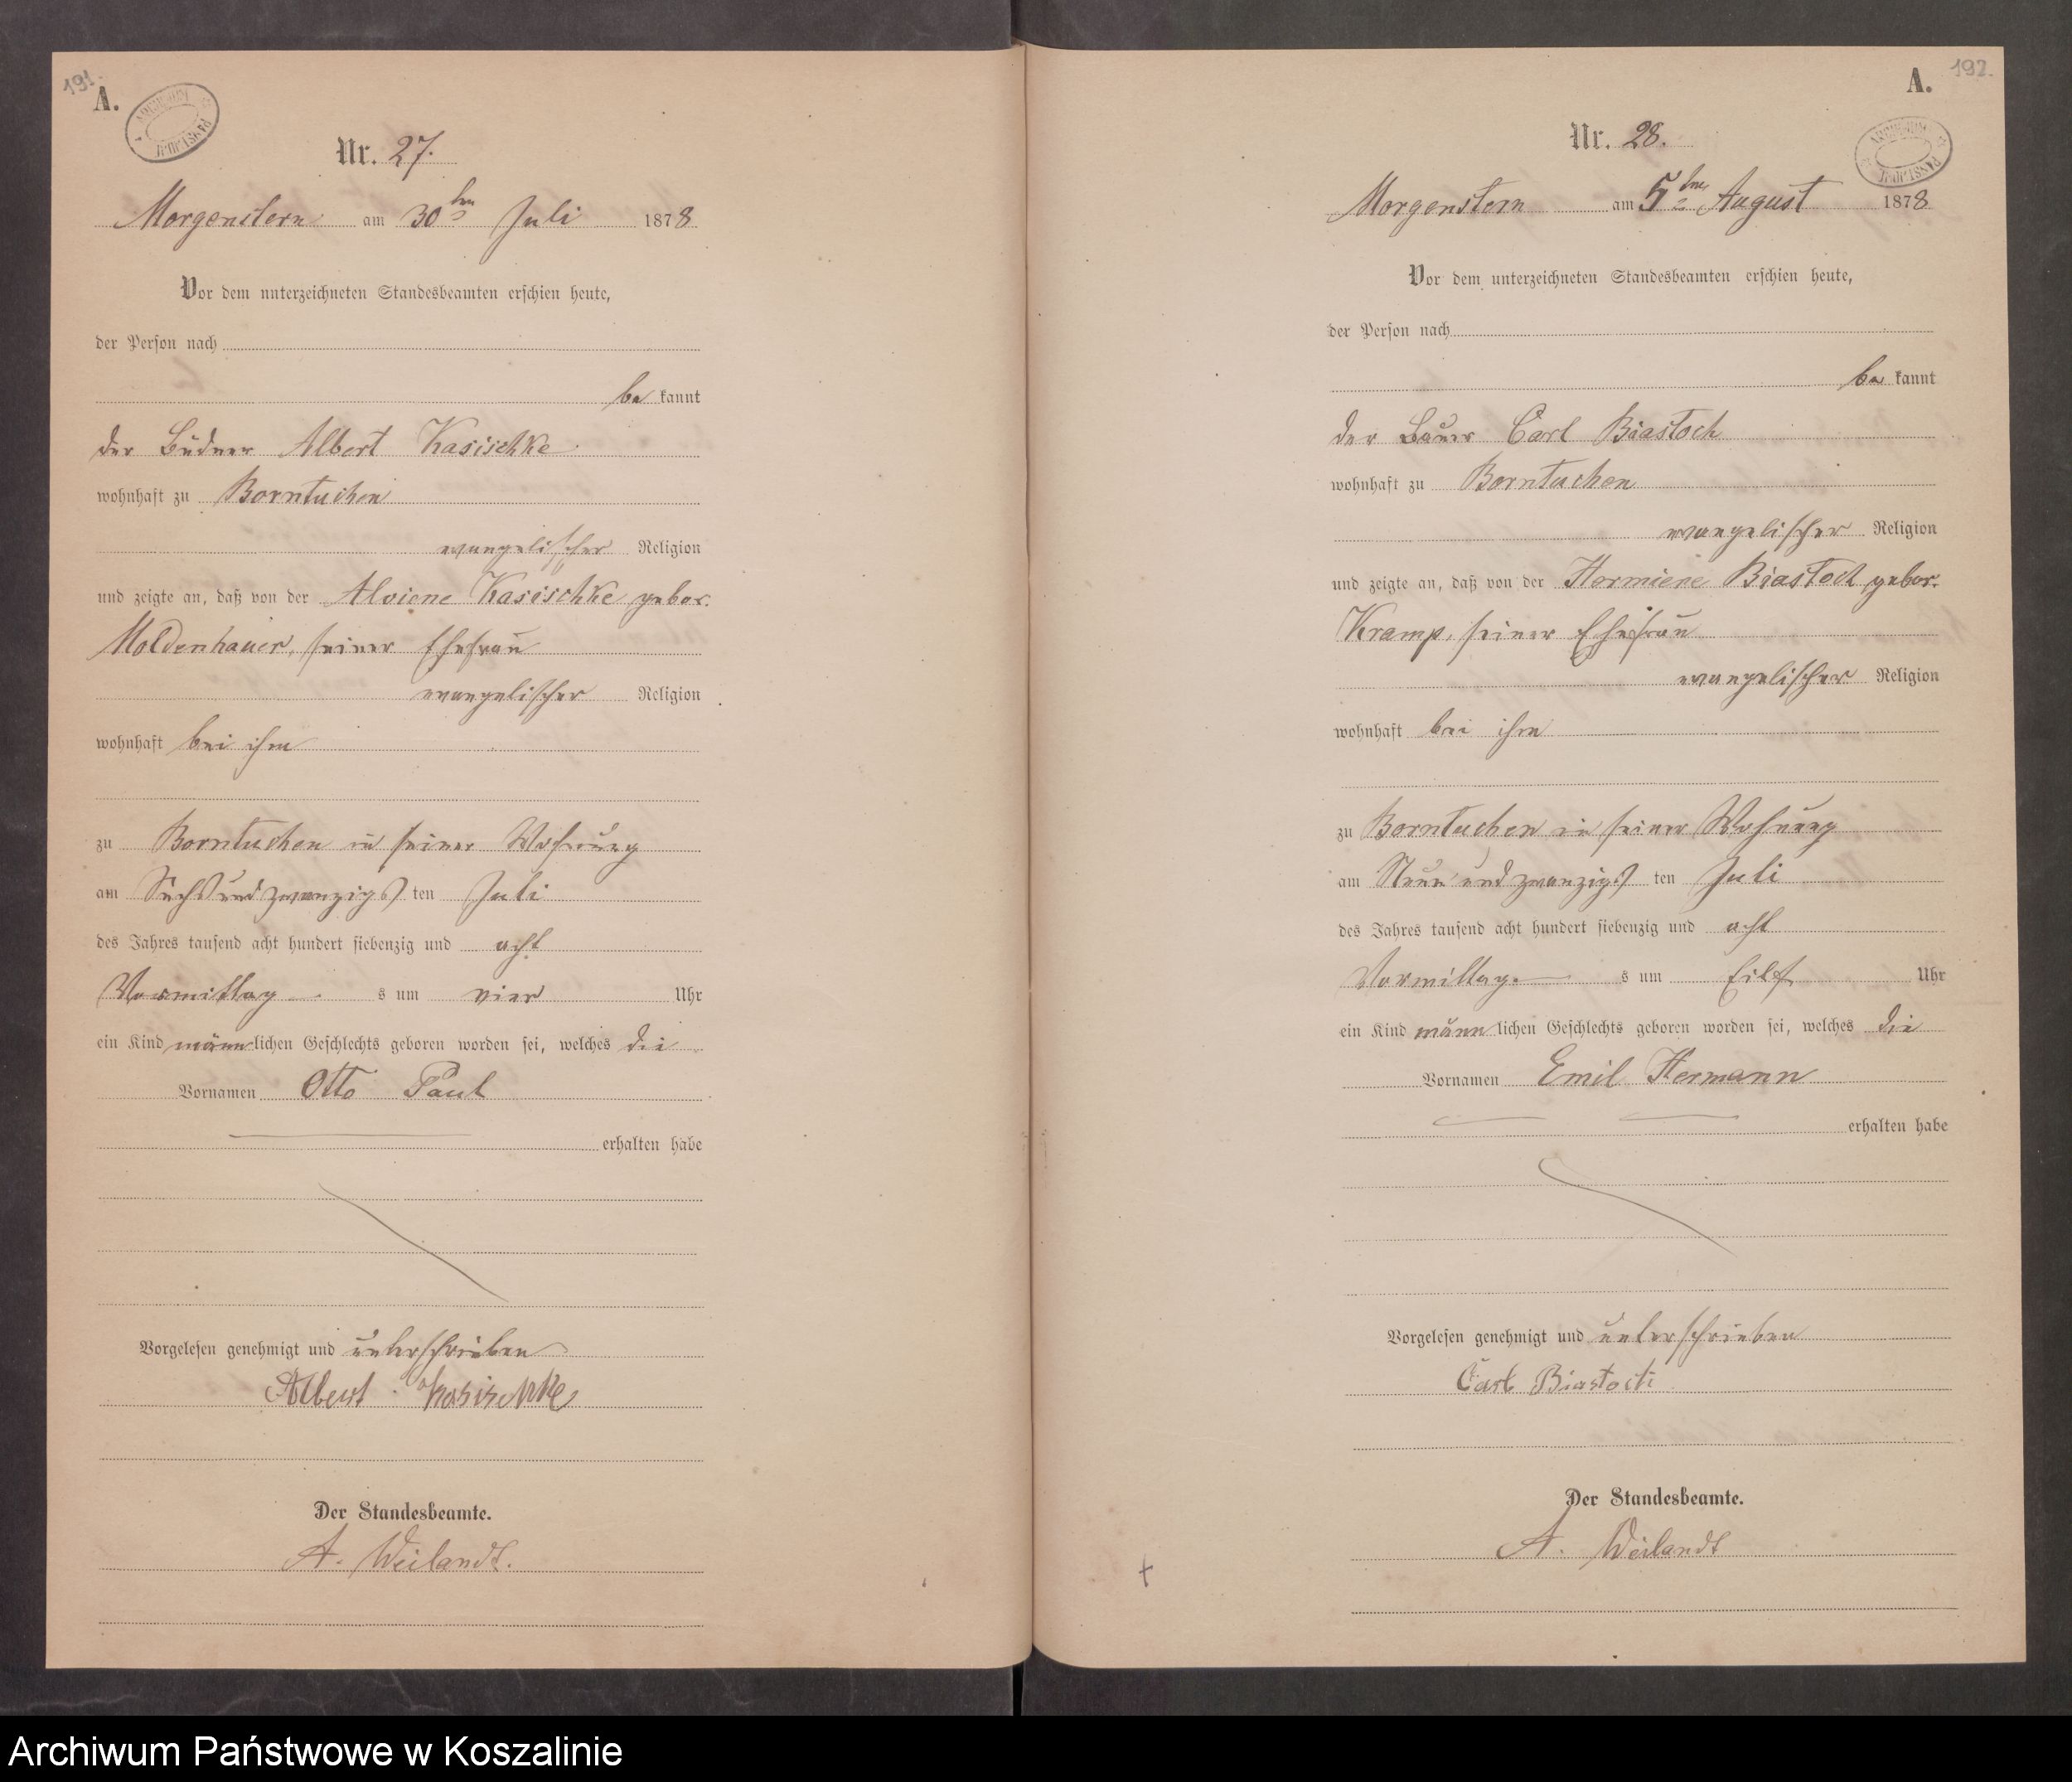 191.
A.
ARCHIWUM PAŃSTWOWE
Nr. 27.
Morgenstern am 30ten Juli 1878
Vor dem unterzeichneten Standesbeamten erschien heute,
der Person nach
be kannt
der Büdner Albert Kasischke
wohnhaft zu Borntuchen
evangelischer Religion
und zeigte an, daß von der Alviene Kasischke gebor.
Moldenhauer, seiner Ehefrau
evangelischer Religion
wohnhaft bei ihm
zu Borntuchen in seiner Wohnung
am Sechs und zwanzigs ten Juli
des Jahres tausend acht hundert siebenzig und acht
Vormittag s um vier Uhr
ein Kind männlichen Geschlechts geboren worden sei, welches die
Vornamen Otto Paul
erhalten habe
Vorgelesen genehmigt und unterschrieben
Albert Kasischke
Der Standesbeamte.
A. Weilandt.
192.
A.
ARCHIWUM PAŃSTWOWE
Nr. 28.
Morgenstern am 5ten August 1878
Vor dem unterzeichneten Standesbeamten erschien heute,
der Person nach
be kannt
der Bauer Carl Biastoch
wohnhaft zu Borntuchen
evangelischer Religion
und zeigte an, daß von der Hermiene Biastoch gebor.
Kramp, seiner Ehefrau
evangelischer Religion
wohnhaft bei ihm
zu Borntuchen in seiner Wohnung
am Neun und zwanzigs ten Juli
des Jahres tausend acht hundert siebenzig und acht
Vormittag s um Eilf Uhr
ein Kind männlichen Geschlechts geboren worden sei, welches die
Vornamen Emil Hermann
erhalten habe
Vorgelesen genehmigt und unterschrieben
Carl Biastoch
Der Standesbeamte.
A. Weilandt
Archiwum Państwowe w Koszalinie